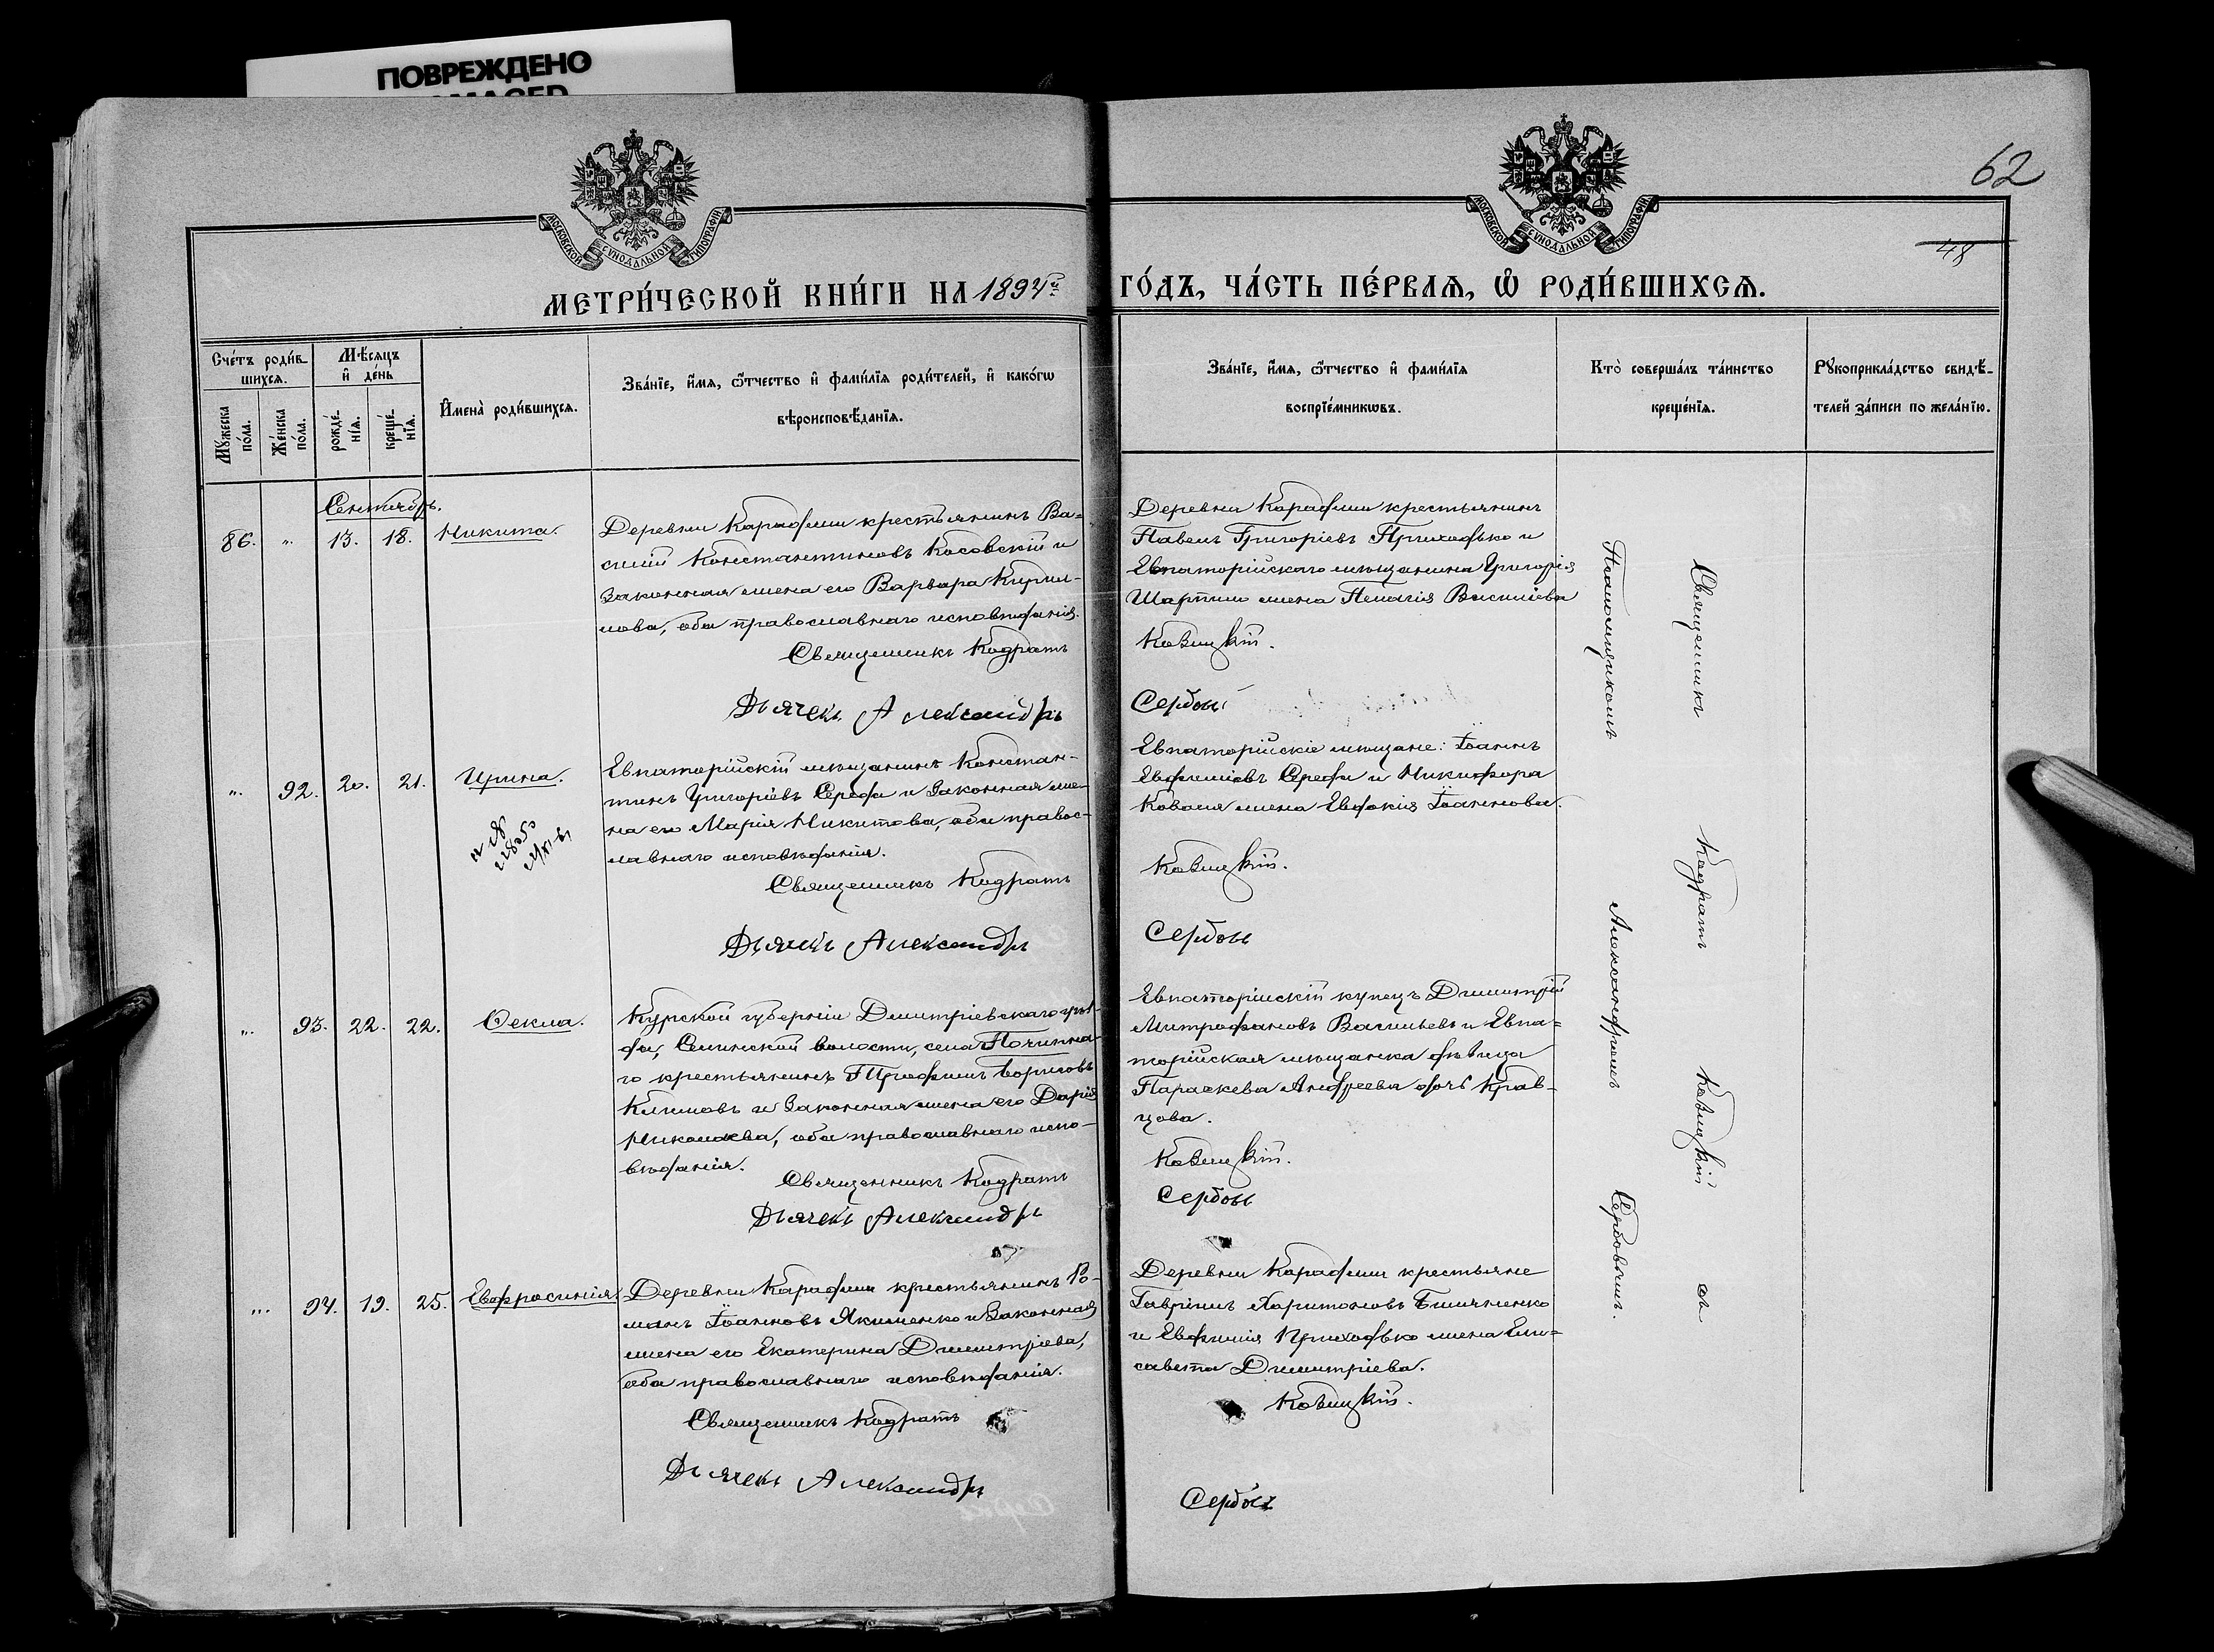 ПОВРЕЖДЕНО
62
48
МОСКОВСКОЙ СѴНОДАЛЬНОЙ ТИПОГРАФІИ
МОСКОВСКОЙ СѴНОДАЛЬНОЙ ТИПОГРАФІИ
МЕТРИ́ЧЕСКОЙ КНИ́ГИ НА 1894й ГО́ДЪ, ЧА́СТЬ ПЕ́РВАѦ, Ѡ҆ РОДИ́ВШИХСѦ.
Сче́тъ роди́в-
шихсѧ.
Мꙋ́жеска
по́ла.
Же́нска
по́ла.
Мѣ́сѧцъ
и҆ де́нь
рожде́-
нїѧ.
креще́-
нїѧ.
И҆мена̀ роди́вшихсѧ.
Зва́нїе, и҆́мѧ, ѻ҆́тчество и҆ фами́лїѧ роди́телей, и҆ како́гѡ
вѣроисповѣ́данїѧ.
Зва́нїе, и҆́мѧ, ѻ҆́тчество и҆ фами́лїѧ
воспрїе́мникѡвъ.
Кто̀ соверша́лъ та́инство
креще́нїѧ.
Рꙋкоприкла́дство свидѣ́-
телей за́писи по жела́нїю.
Сентябрь.
86. „ 13. 18. Никита.
Деревни Караджи крестьянинъ Ва-
силій Константиновъ Косовскій и
законная жена его Варвара Кирил-
лова, оба православнаго исповѣданія.
Священникъ Кодратъ
Дьячекъ Александръ
Деревни Караджи крестьянинъ
Павелъ Григоріевъ Приходько и
Евпаторійскаго мѣщанина Григорія
жена Пелагія Василіева
Кавицкій.
Сербовъ
„ 92. 20. 21. Ирина.
Евпаторійскій мѣщанинъ Констан-
тинъ Григоріевъ Середа и законная же-
на его Марія Никитова, оба правос-
лавнаго исповѣданія.
Священникъ Кодратъ
Дьячекъ Александръ
Евпаторійскіе мѣщане: Іоаннъ
Евфиміевъ Середа и Никифора
Коваля жена Евдокія Іоаннова.
Кавицкій.
Сербовъ
„ 93. 22. 22. Ѳекла.
Курской губерніи Дмитріевскаго уѣз-
да, волости, села Починна-
го крестьянинъ Трофимъ Борисовъ
Климовъ и законная жена его Дарія
Николаева, оба православнаго испо-
вѣданія.
Священникъ Кодратъ
Дьячекъ Александръ
Евпаторійскій купецъ Димитрій
Митрофановъ Васильевъ и Евпа-
торійская мѣщанка дѣвица
Параскева Андреева дочь Крав-
цова.
Кавицкій.
Сербовъ
„ 94. 19. 25. Евфросинія
Деревни Караджи крестьянинъ Ро-
манъ Іоанновъ Якименко и законная
жена его Екатерина Димитріева,
оба православнаго исповѣданія.
Священникъ Кодратъ
Дьячекъ Александръ
Деревни Караджи крестьяне
Гавріилъ Харитоновъ
и Евфимія Приходько жена Ели-
савета Димитріева.
Кавицкій.
Сербовъ
Священникъ Кодратъ Кавицкій съ
Псаломщикомъ Александромъ Сербовымъ.